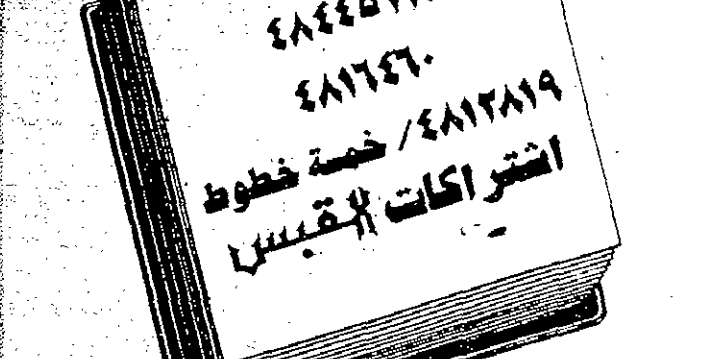 ٤٨١٦٤٦٠
٤٨١٢٨١٩/ خمسة خطوط
اشتراكات القبس